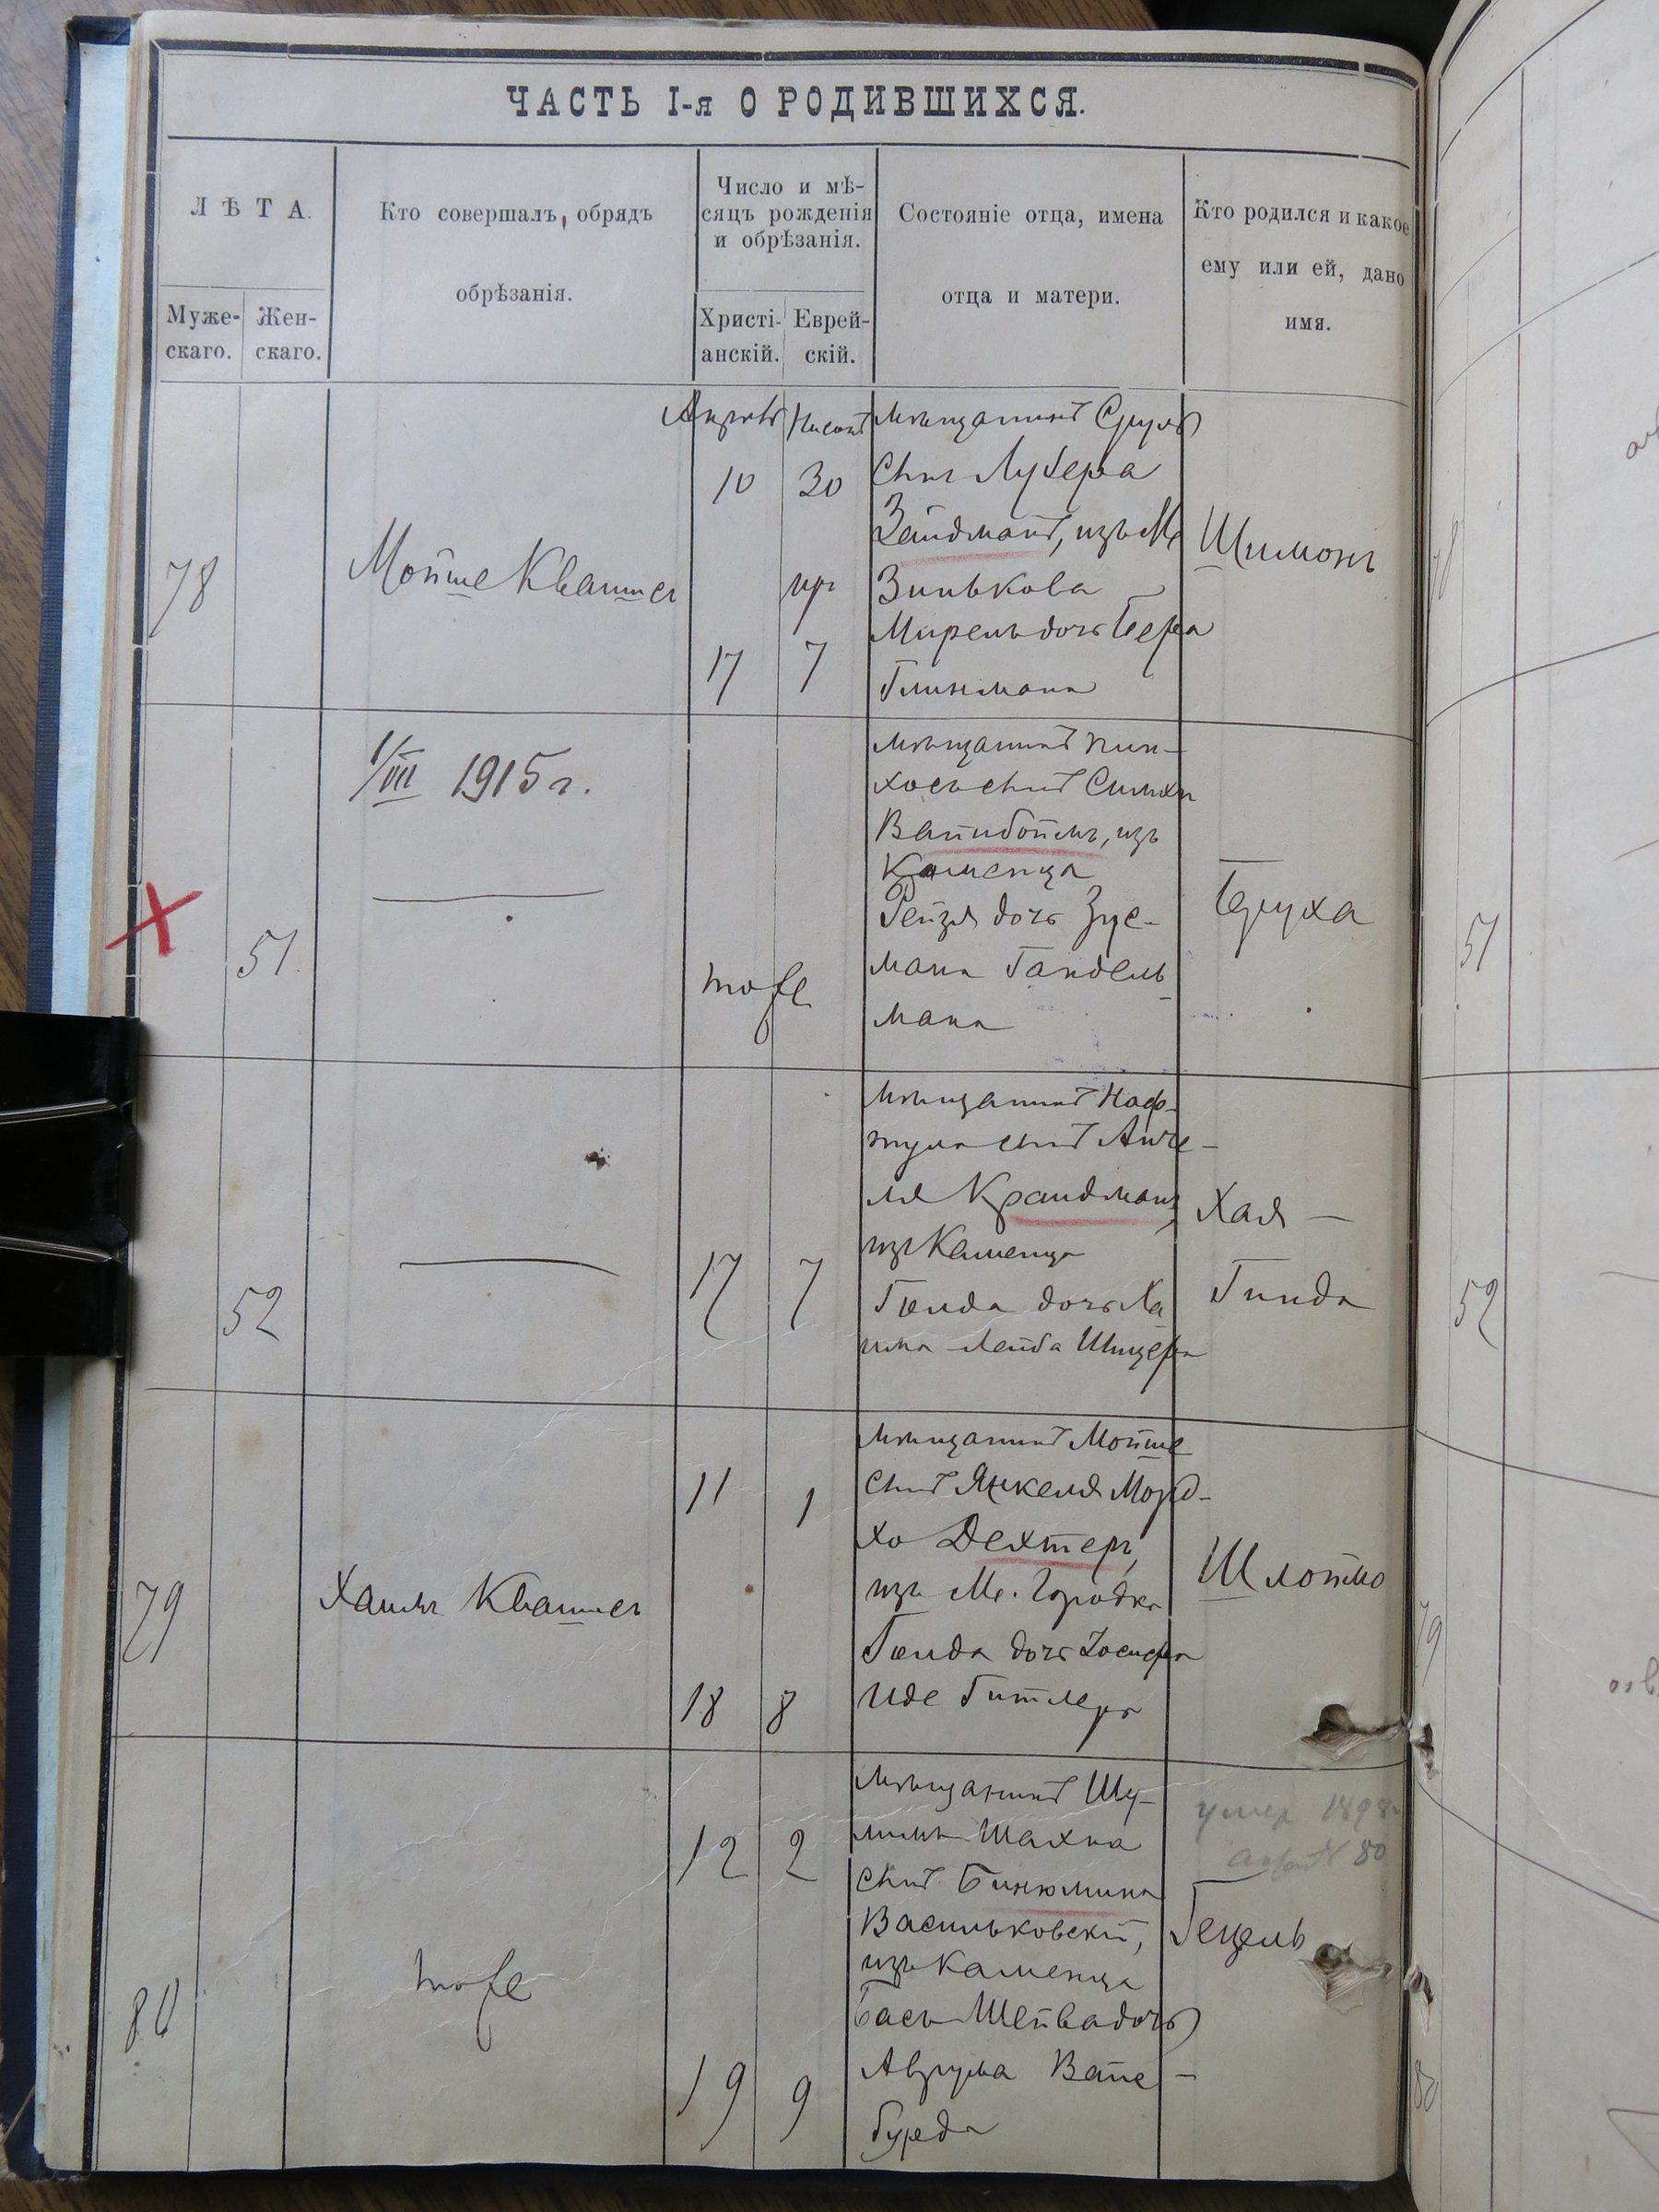 ЧАСТЬ I-я О РОДИВШИХСЯ.
ЛѢТА.
Муже-
скаго.
Жен-
скаго.
Кто совершалъ, обрядъ
обрѣзанія.
Число и мѣ-
сяцъ рожденія
и обрѣзанія.
Христі-
анскій.
Еврей-
скій.
Состояніе отца, имена
отца и матери.
Кто родился и какое
ему или ей, дано
имя.
78
Мойше Квашнеръ
Апрель
10
17
30
7
мѣщанинъ Сруль
сынъ
Зайдманъ, изъ М.
Зинькова
Мирель дочь Бера
Глинмана
Шимонъ
51
1/VII 1915 г.
тоже
мѣщанинъ Пин-
хосъ сынъ Симхи
изъ
Каменца
Рейзя дочь Зус-
мана Гандель
мана
Бруха
52
17
7
мѣщанинъ Наф-
тула сынъ Анче-
ля
изъ Каменца
Гольда дочь Ха
има Лейба
Хая —
Гинда
79
Хаимъ
11
18
1
8
мѣщанинъ Мойше
сынъ Янкеля Морд-
хо Дехтеръ,
изъ М. Городка
дочь Іосифа
Гитлера
Шлоймо
80
тоже
12
19
2
9
мѣщанинъ Шу-
лимъ Шахна
сынъ Бинюмина
Васильковскій,
изъ Каменца
Бася Шейва дочь
Аврума Вайс-
бурда
умер 1898
80
Гецель
51
52
79
80